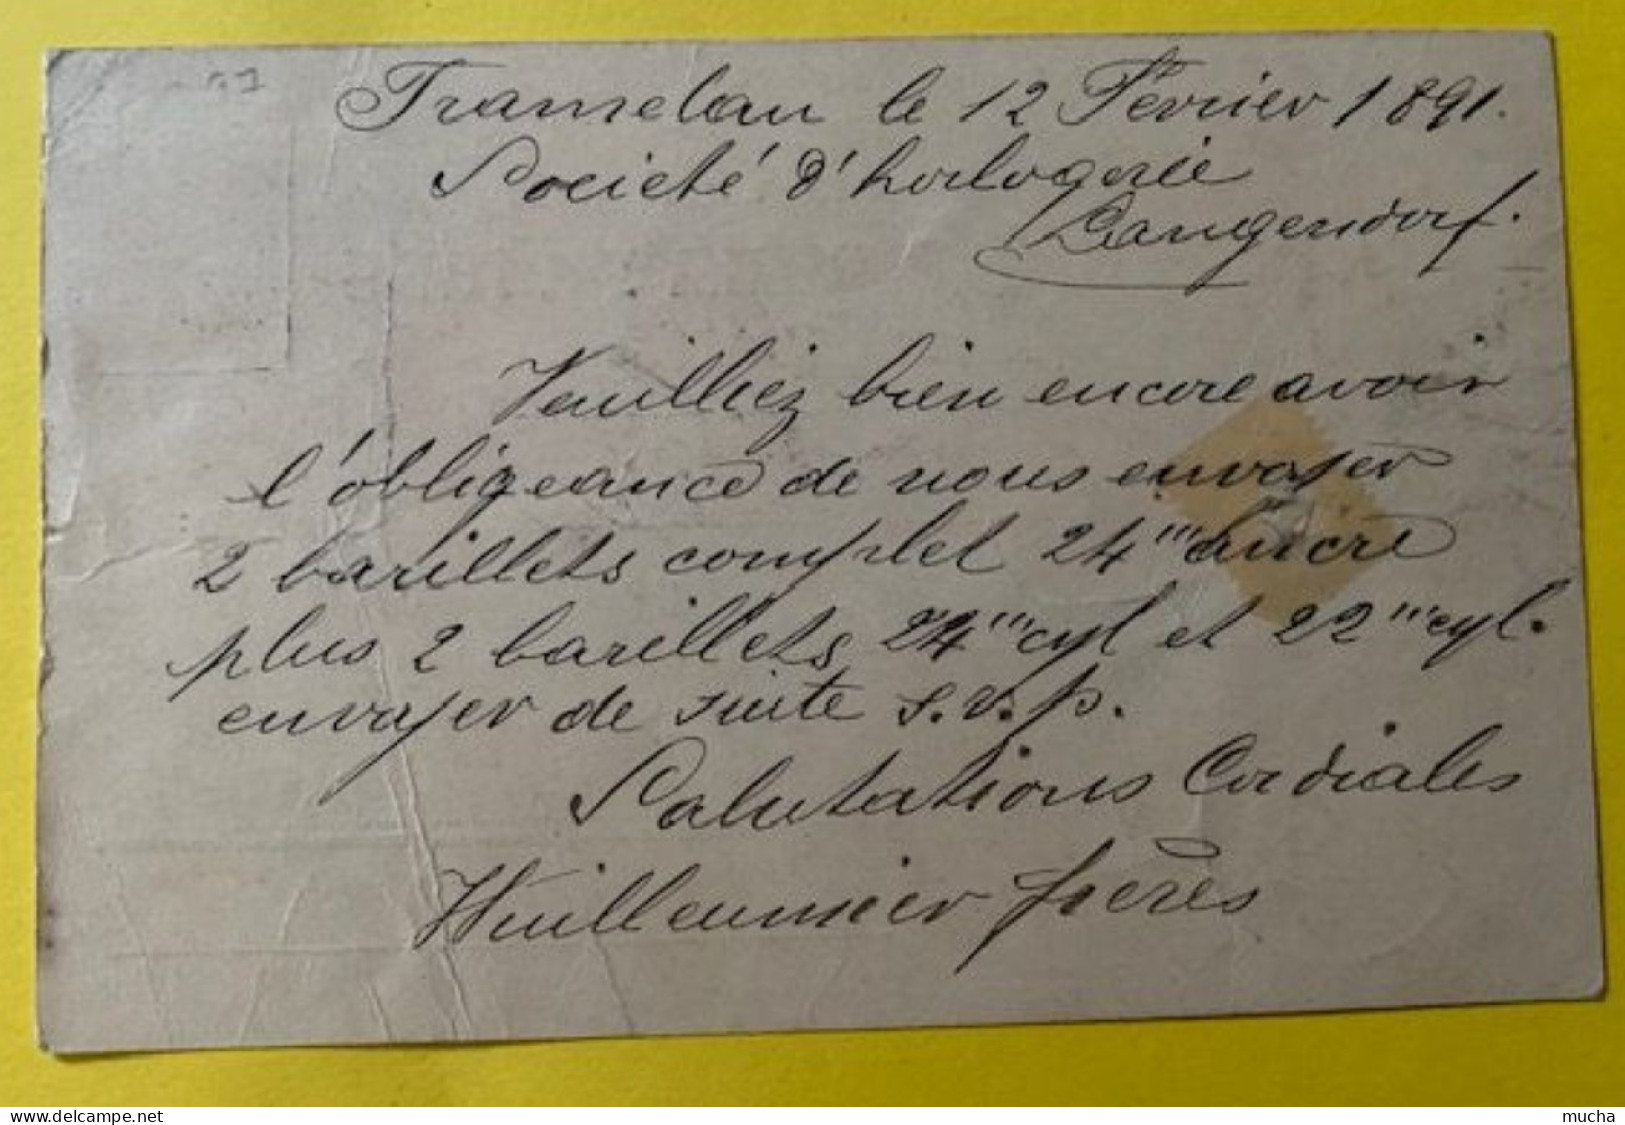 Tramelan le 12 Février 1891.
Société d'horlogerie
Langendorf.
Veuilliez bien encore avoir
l'obligeance de nous envoyer
2 barillets complet 24''' ancre
plus 2 barillets 24''' cyl et 22''' cyl.
envoyer de suite s.v.p.
Salutations Cordiales
Vuilleumier frères
www.delcampe.net
mucha